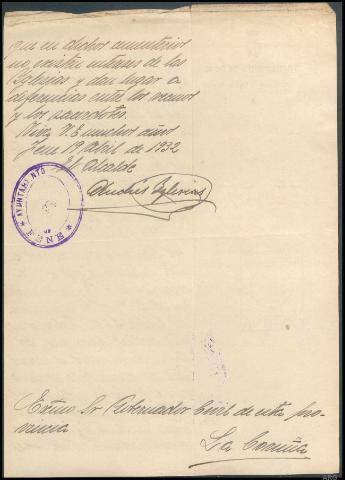 que en dichos cementerios
no existen intereses de las
Iglesias y dan lugar a
diferencias entre los vecinos
y los sacerdotes.
Viva V.E. muchos años
Fene 19 Abril de 1932
El Alcalde
Andrés Iglesias
AYUNTAMIENTO DE FENE
Exmo Sr Gobernador Civil de esta pro-
vincia
La Coruña
ARG